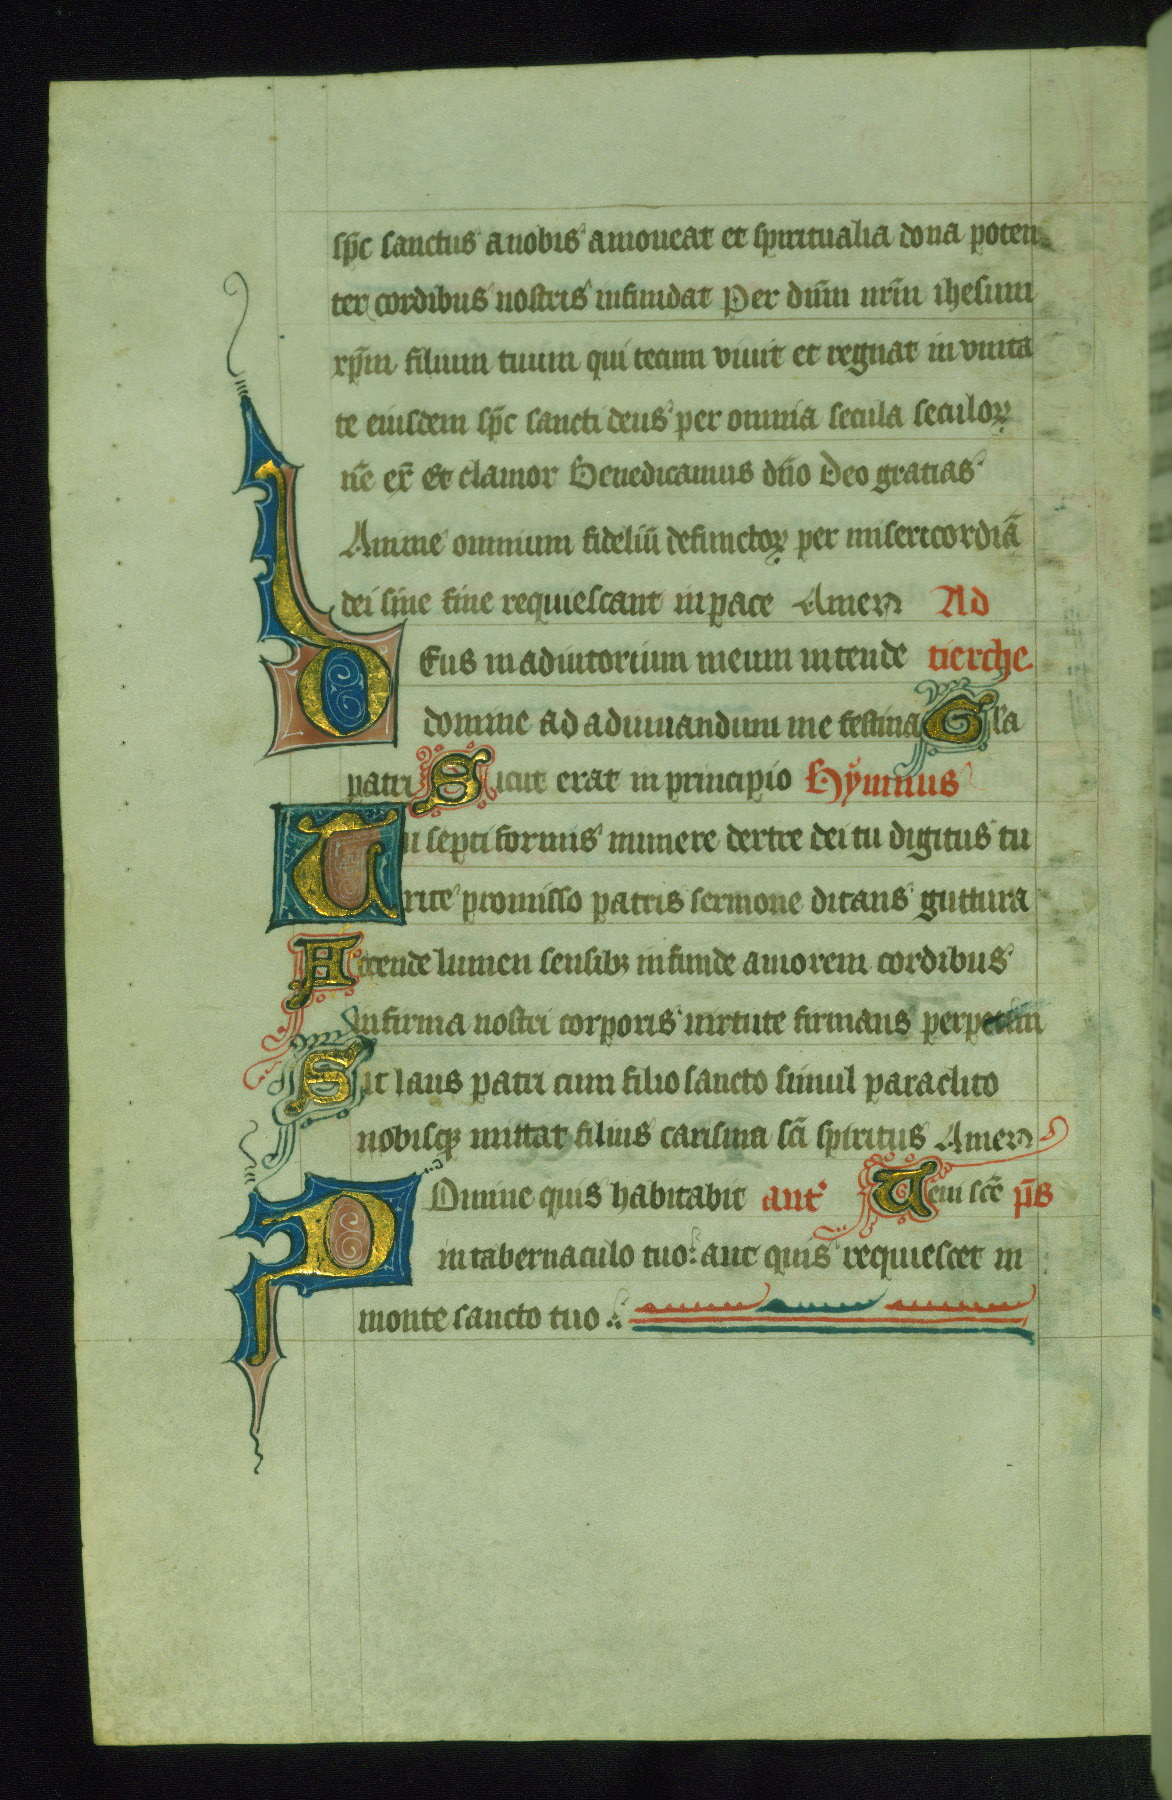 sp̄c sanctus a nobis amoueat et spiritualia dona poten
ter cordibus nostris infundat Per dn̄m nr̄m ihesum
xp̄m filium tuum qui tecum viuit et regnat in vnita
te eiusdem sp̄c sancti deus per omnia secula seculoꝝ
n̄e ex̄ Et clamor Benedicamus dn̄o Deo gratias
Anime omnium fideliū defunctoꝝ per misericordiā
dei sine fine requiescant in pace Amen Ad
Deus in adiutorium meum intende tierche.
domine ad adiuuandum me festina Gl'a
patri Sicut erat in principio Hymnus
Tu septiformis munere dextre dei tu digitus tu
rite promisso patris sermone ditans guttura
Accende lumen sensibꝫ infunde amorem cordibus
infirma nostri corporis uirtute firmans perpetim
Sit laus patri cum filio sancto simul paraclito
nobisqꝫ mittat filius carisma sc̄i spiritus Amen
Domine quis habitabit ant' Veni sc̄e p̄s
in tabernaculo tuo: aut quis requiescet in
monte sancto tuo